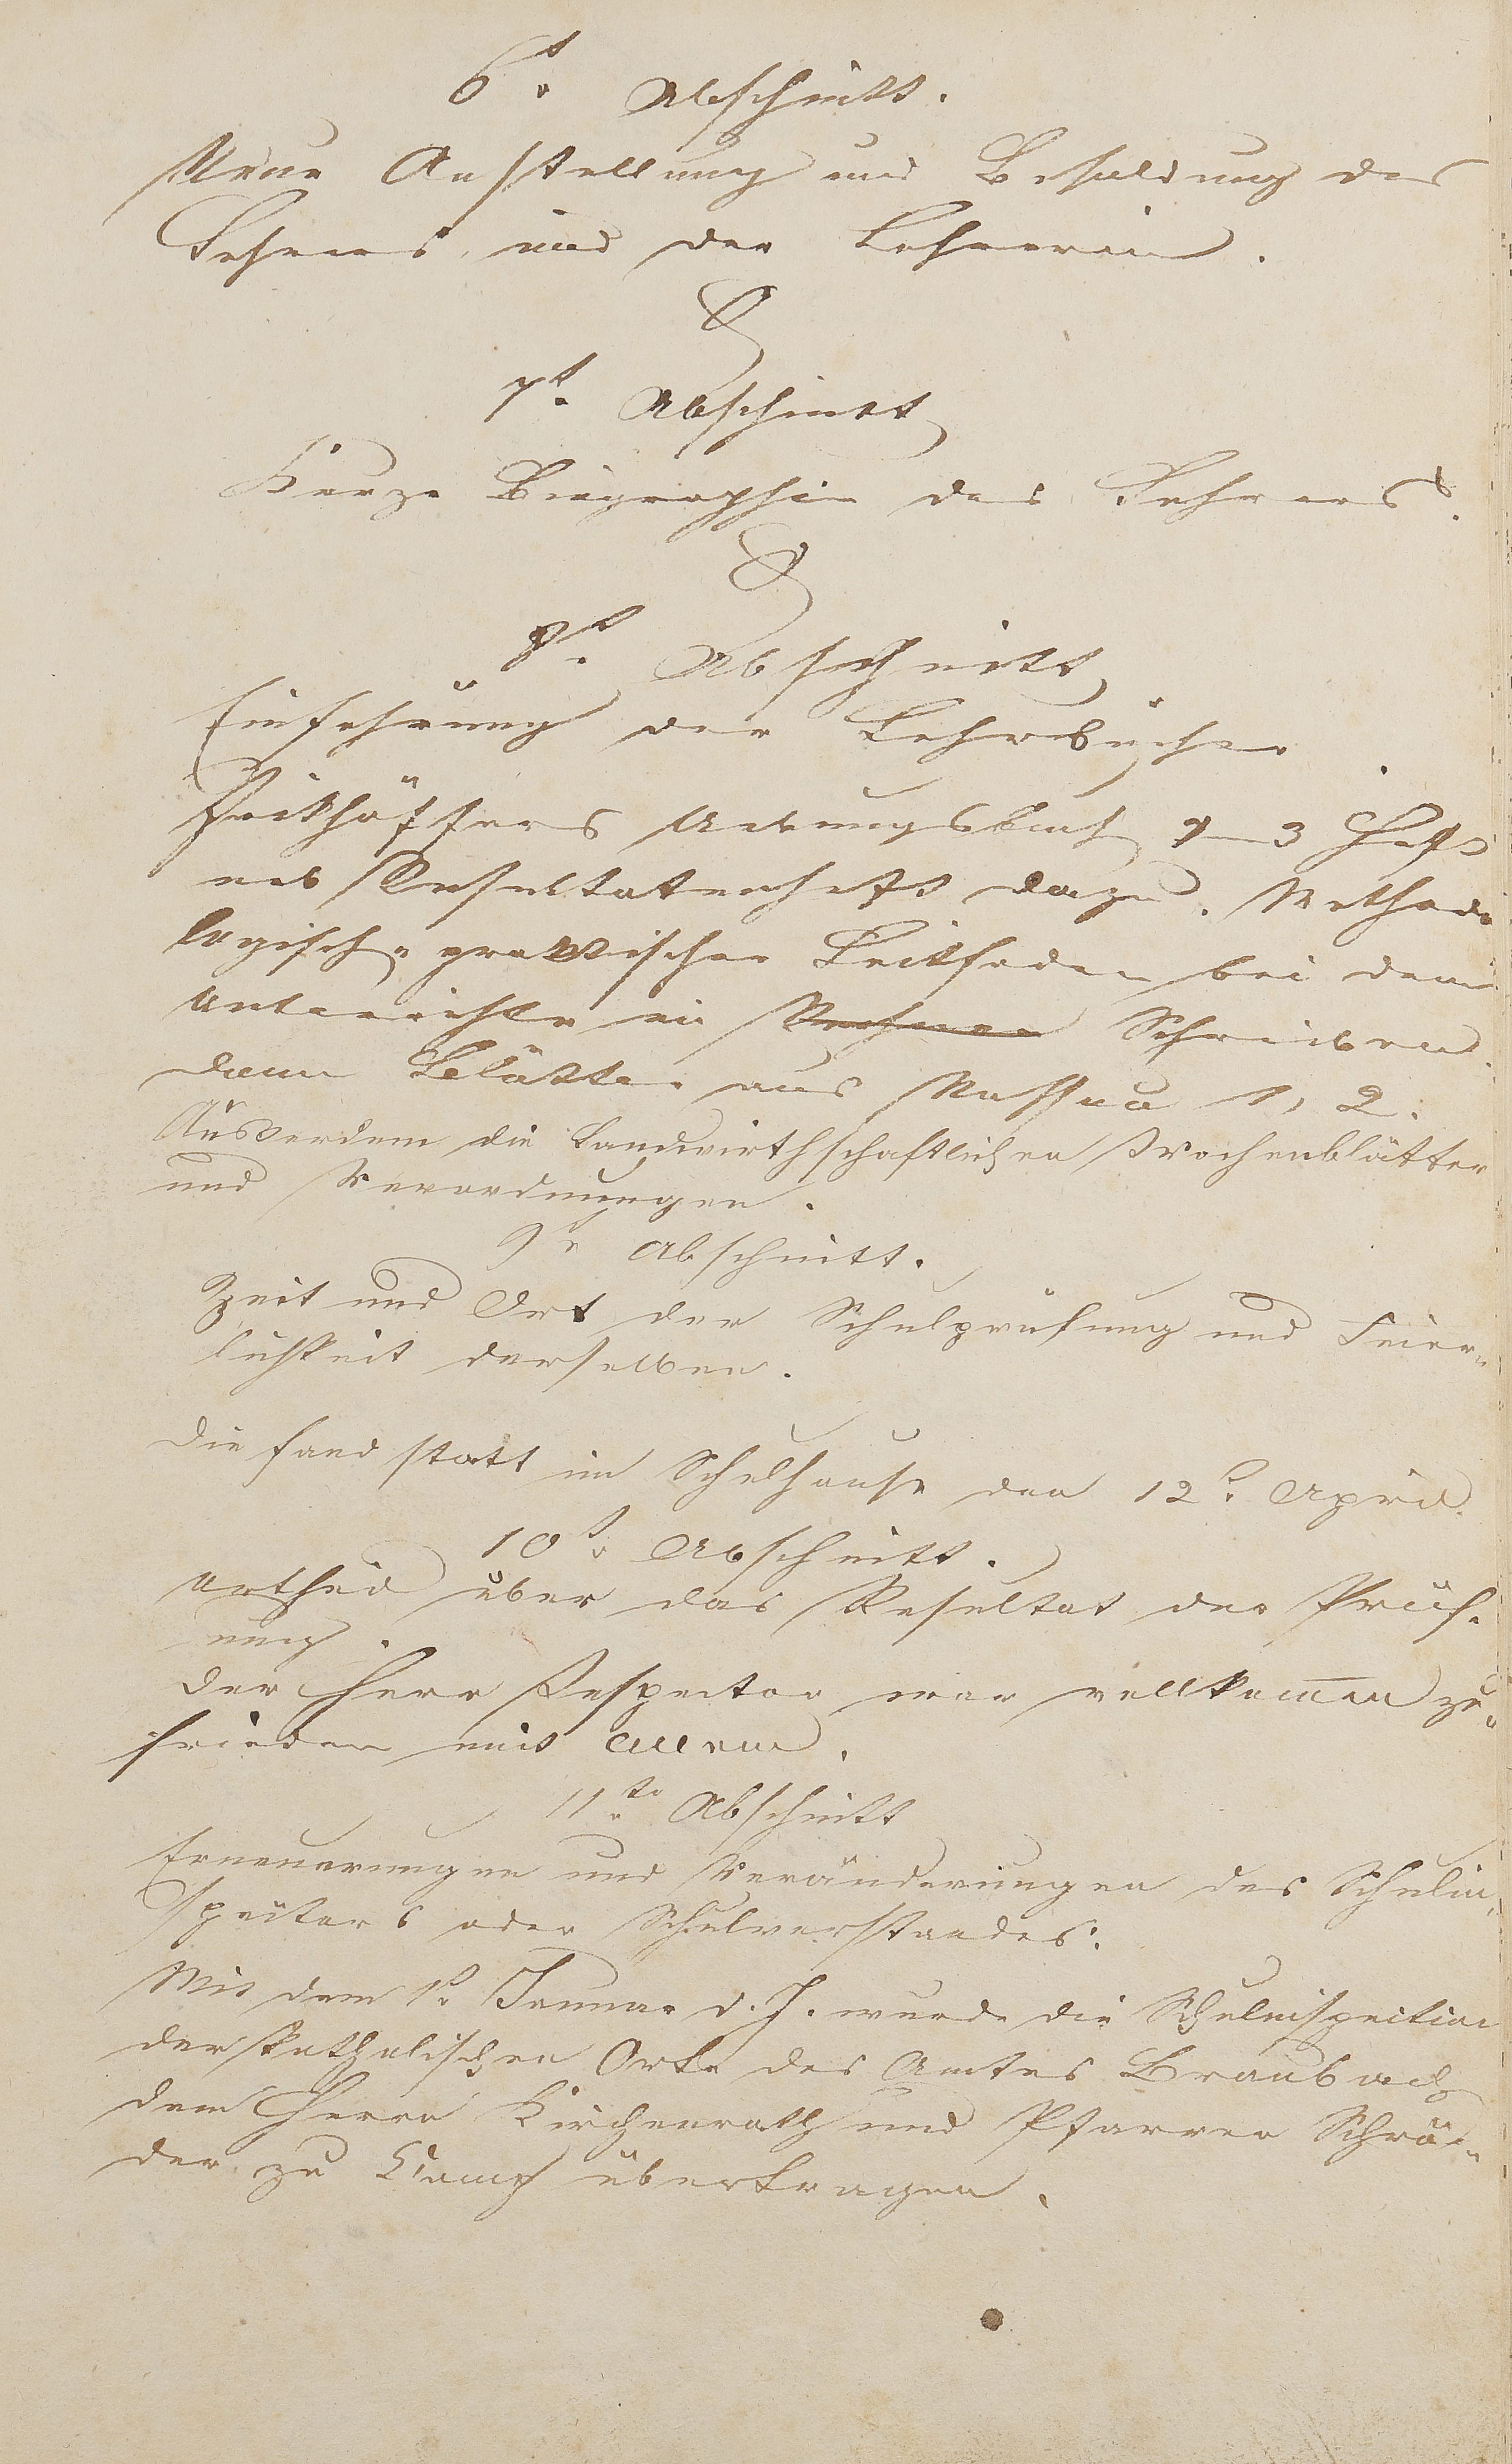 6t. Abschnitt.
Neue Anstellung und Besoldung des
Lehrers und der Lehrerin.
7t. Abschnitt
Kurze Biographie des Lehrers.
8t. Abschnitt
Einfuhrung der Lehrbücher.
Übungsbuch 1-3 Heft
nebst Resultatenheft dazu. Methodo
logisch praktischer Leitfaden bei dem
Unterrichte im Rechnen Schreiben
dann Blätter aus Nassau 1, 2.
Außerdem die Landwirthschaftlichen Wochenblätter
und Verordnungen.
9t. Abschnitt.
Zeit und Ort der Schulprüfung und Feier-
lichkeit derselben.
Die fand statt im Schulhause den 12t. April.
10t. Abschnitt.
Urtheil über das Resultat der Prüf-
ung.
Der Herr Inspector war vollkommen zu-
frieden mit allem.
11te. Abschnitt
Erneuerungen und Veränderungen des Schulin-
spectors oder Schulvorstandes.
Mit dem 1t. Januar d. J. wurde die Schulinspection
der katholischen Orte des Amtes Braubach
dem Herrn Kirchenrath und Pfarrer Schrö-
der zu Camp übertragen.